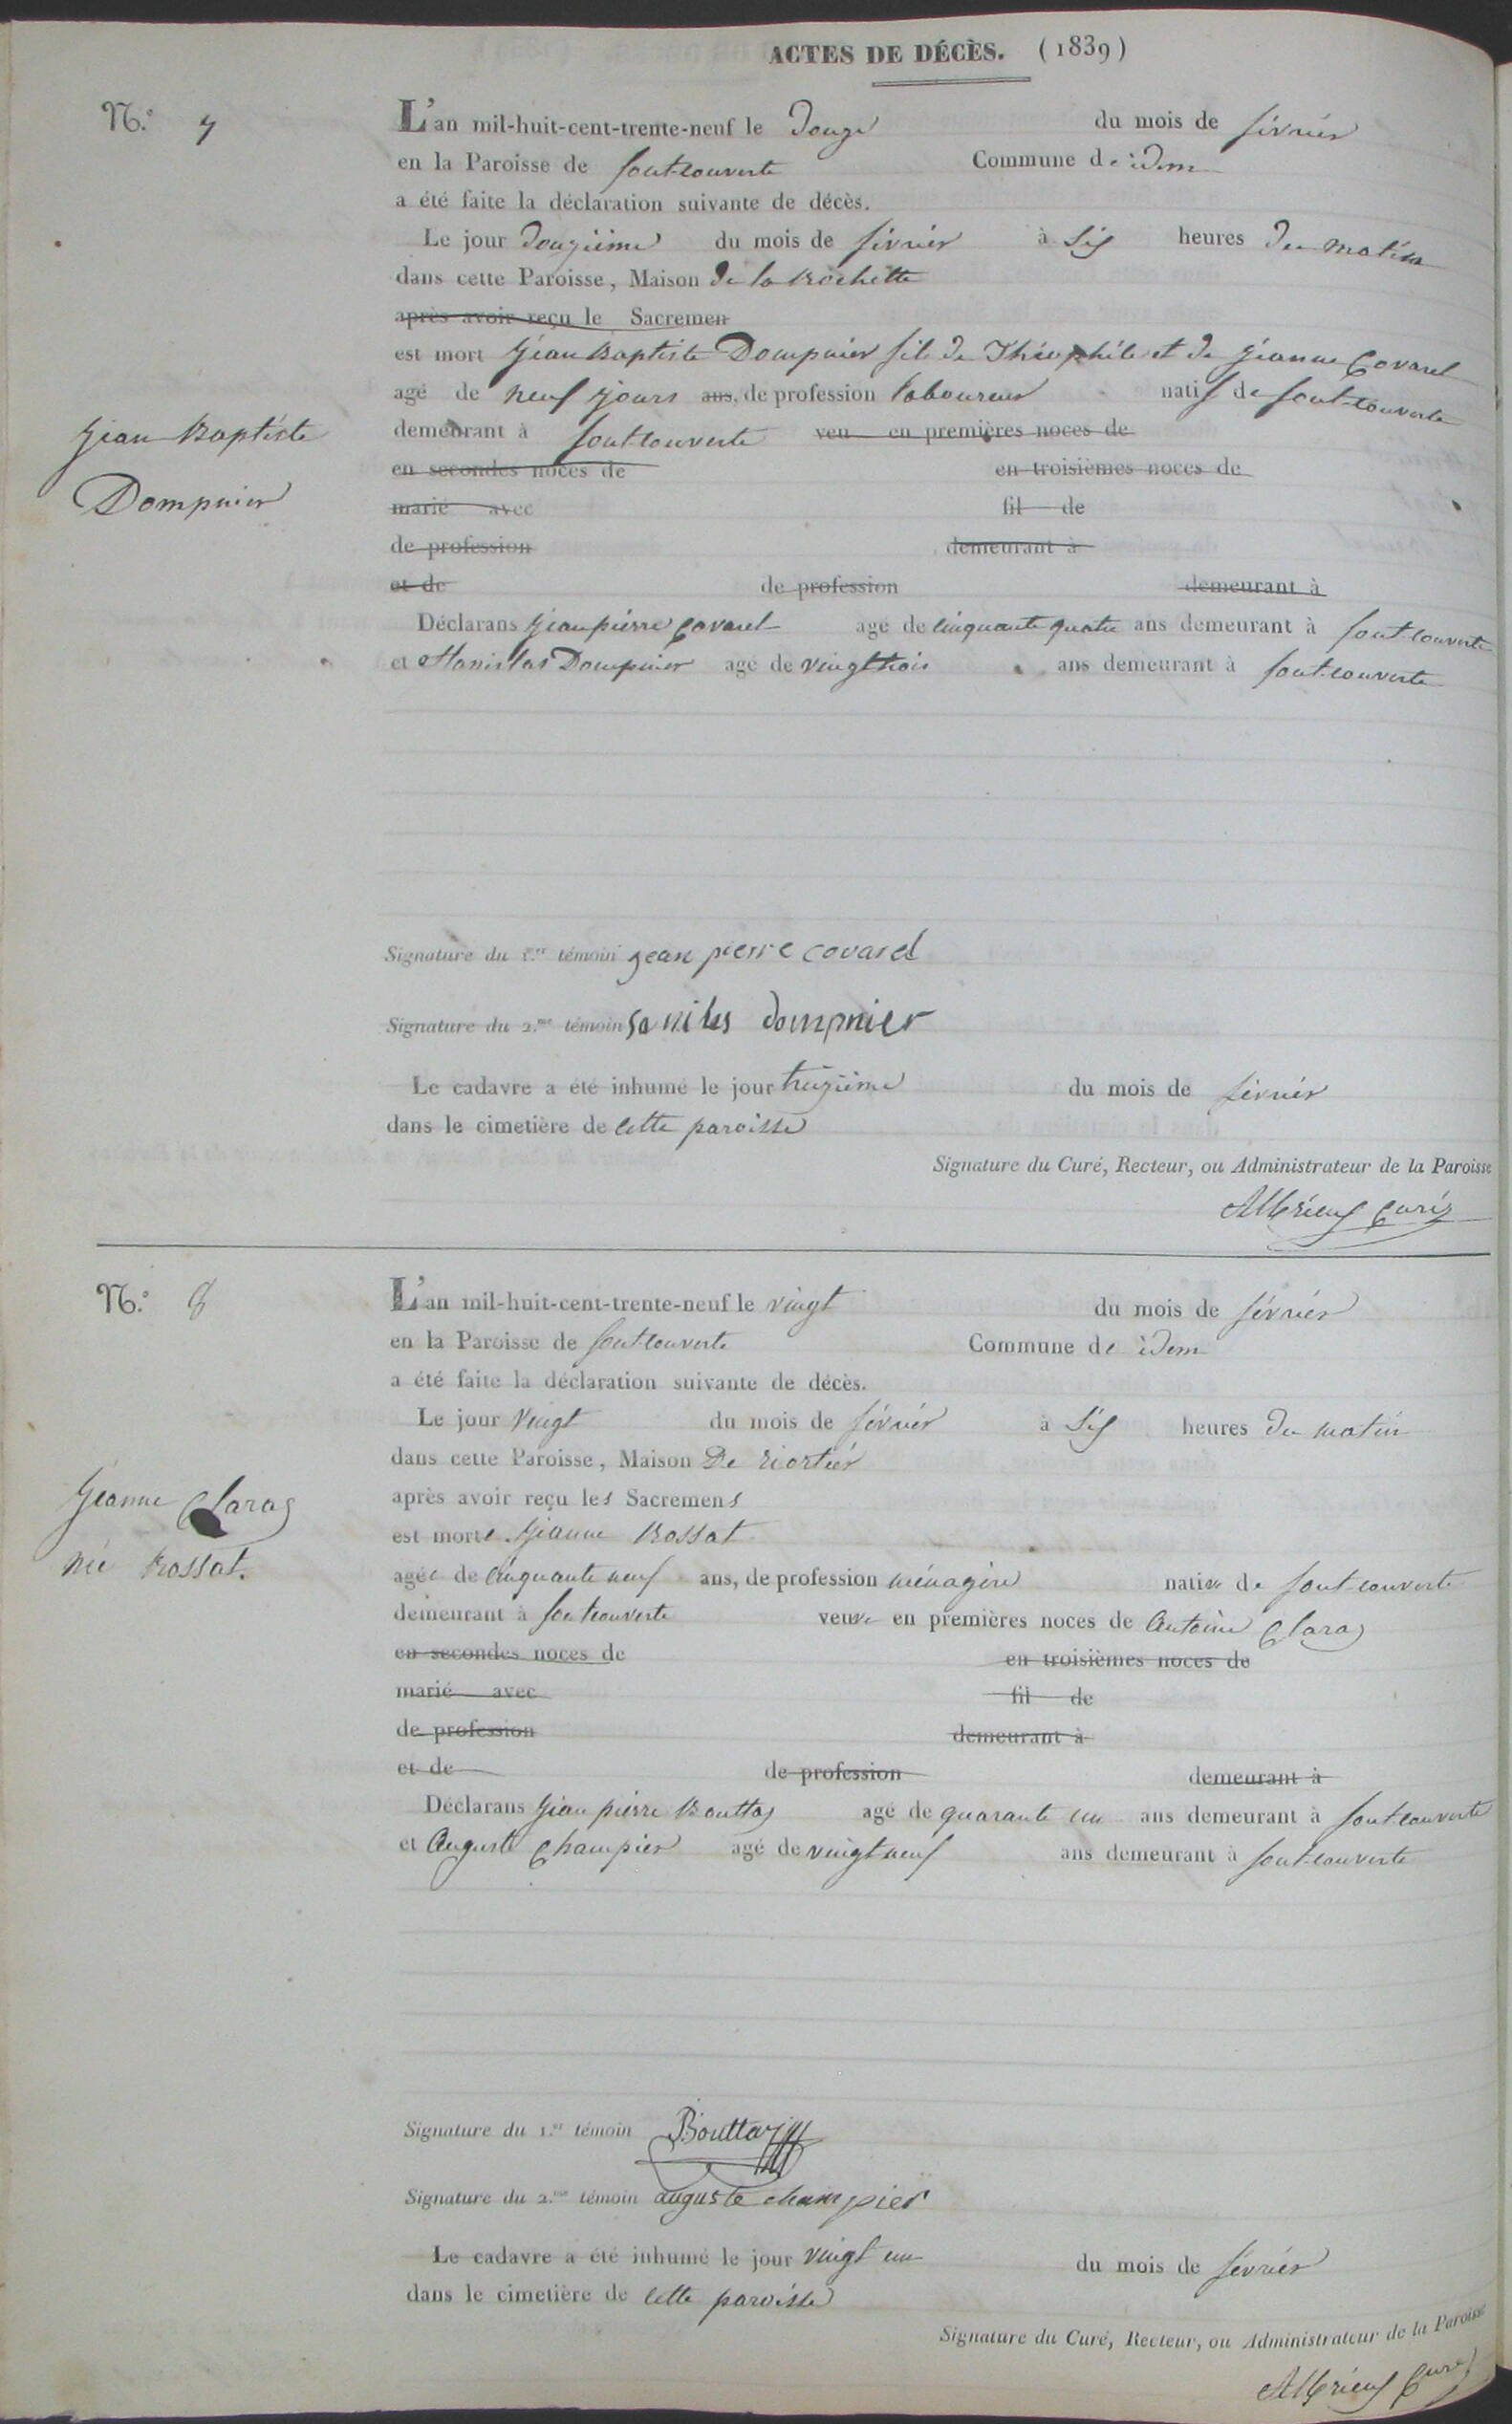 ACTES DE DÉCÈS. (1839)
N.º 7
L'an mil-huit-cent-trente-neuf le douze du mois de février
en la Paroisse de fontcouverte Commune de idem
a été faite la déclaration suivante de décès.
Le jour douzième du mois de février à six heures du matin
dans cette Paroisse, Maison de la Rochette
après avoir reçu le Sacremen
est mort Jean Baptiste Dompnier fils de Théophile et de Jeanne Covarel
agé de neuf jours ans, de profession laboureur natif de fontcouverte
Jean Baptiste
Dompnier
demeurant à fontcouverte veu en premières noces de
en secondes noces de en troisièmes noces de
marié avec fil de
de profession demeurant à
et de de profession demeurant à
Déclarans Jean pierre Covarel agé de cinquante quatre ans demeurant à fontcouverte
et Stanislas Dompnier agé de vingt trois ans demeurant à fontcouverte
Signature du 1.er témoin jean pierre covarel
Signature du 2.me témoin dompnier
Le cadavre a été inhumé le jour treizième du mois de février
dans le cimetière de cette paroisse
Signature du Curé, Recteur, ou Administrateur de la Paroisse
Albrieux Curé
N.º 8
L'an mil-huit-cent-trente-neuf le vingt du mois de février
en la Paroisse de fontcouverte Commune de idem
a été faite la déclaration suivante de décès.
Le jour vingt du mois de février à six heures du matin
dans cette Paroisse, Maison De riortier
après avoir reçu les Sacremens
Jeanne Claraz
née Rossat.
est morte Jeanne Rossat
agée de cinquante neuf ans, de profession ménagère native de fontcouverte
demeurant à fontcouverte veuve en premières noces de Antoine Claraz
en secondes noces de en troisièmes noces de
marié avec fil de
de profession demeurant à
et de de profession demeurant à
Déclarans Jean pierre Bouttaz agé de quarante un ans demeurant à fontcouverte
et Auguste Champier agé de vingt neuf ans demeurant à fontcouverte
Signature du 1.er témoin Bouttaz
Signature du 2.me témoin auguste champier
Le cadavre a été inhumé le jour vingt un du mois de février
dans le cimetière de cette paroisse
Signature du Curé, Recteur, ou Administrateur de la Paroisse
Albrieux Curé